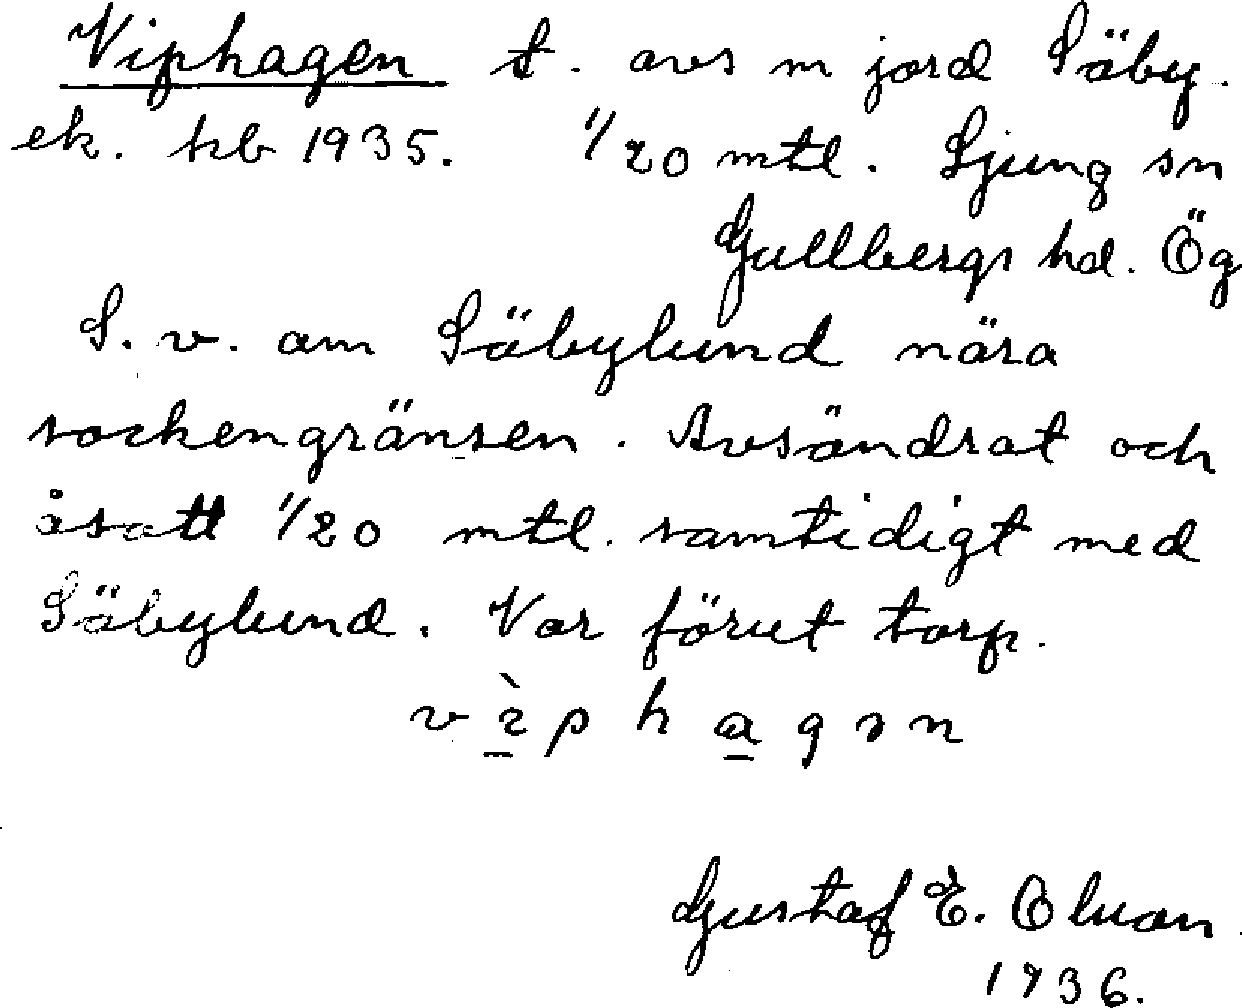 Viphagen t. avs m jord Säby.
ek. kb 1935. 1/20 mtl. Ljung sn
Gullbergs hd. Ög
S. v. om Säbylund nära
sockengränsen. Avsöndrat och
åsatt 1/20 mtl. samtidigt med
Säbylund. Var förut torp.
v ì p h a g ə n
Gustaf E. Olson
1936.